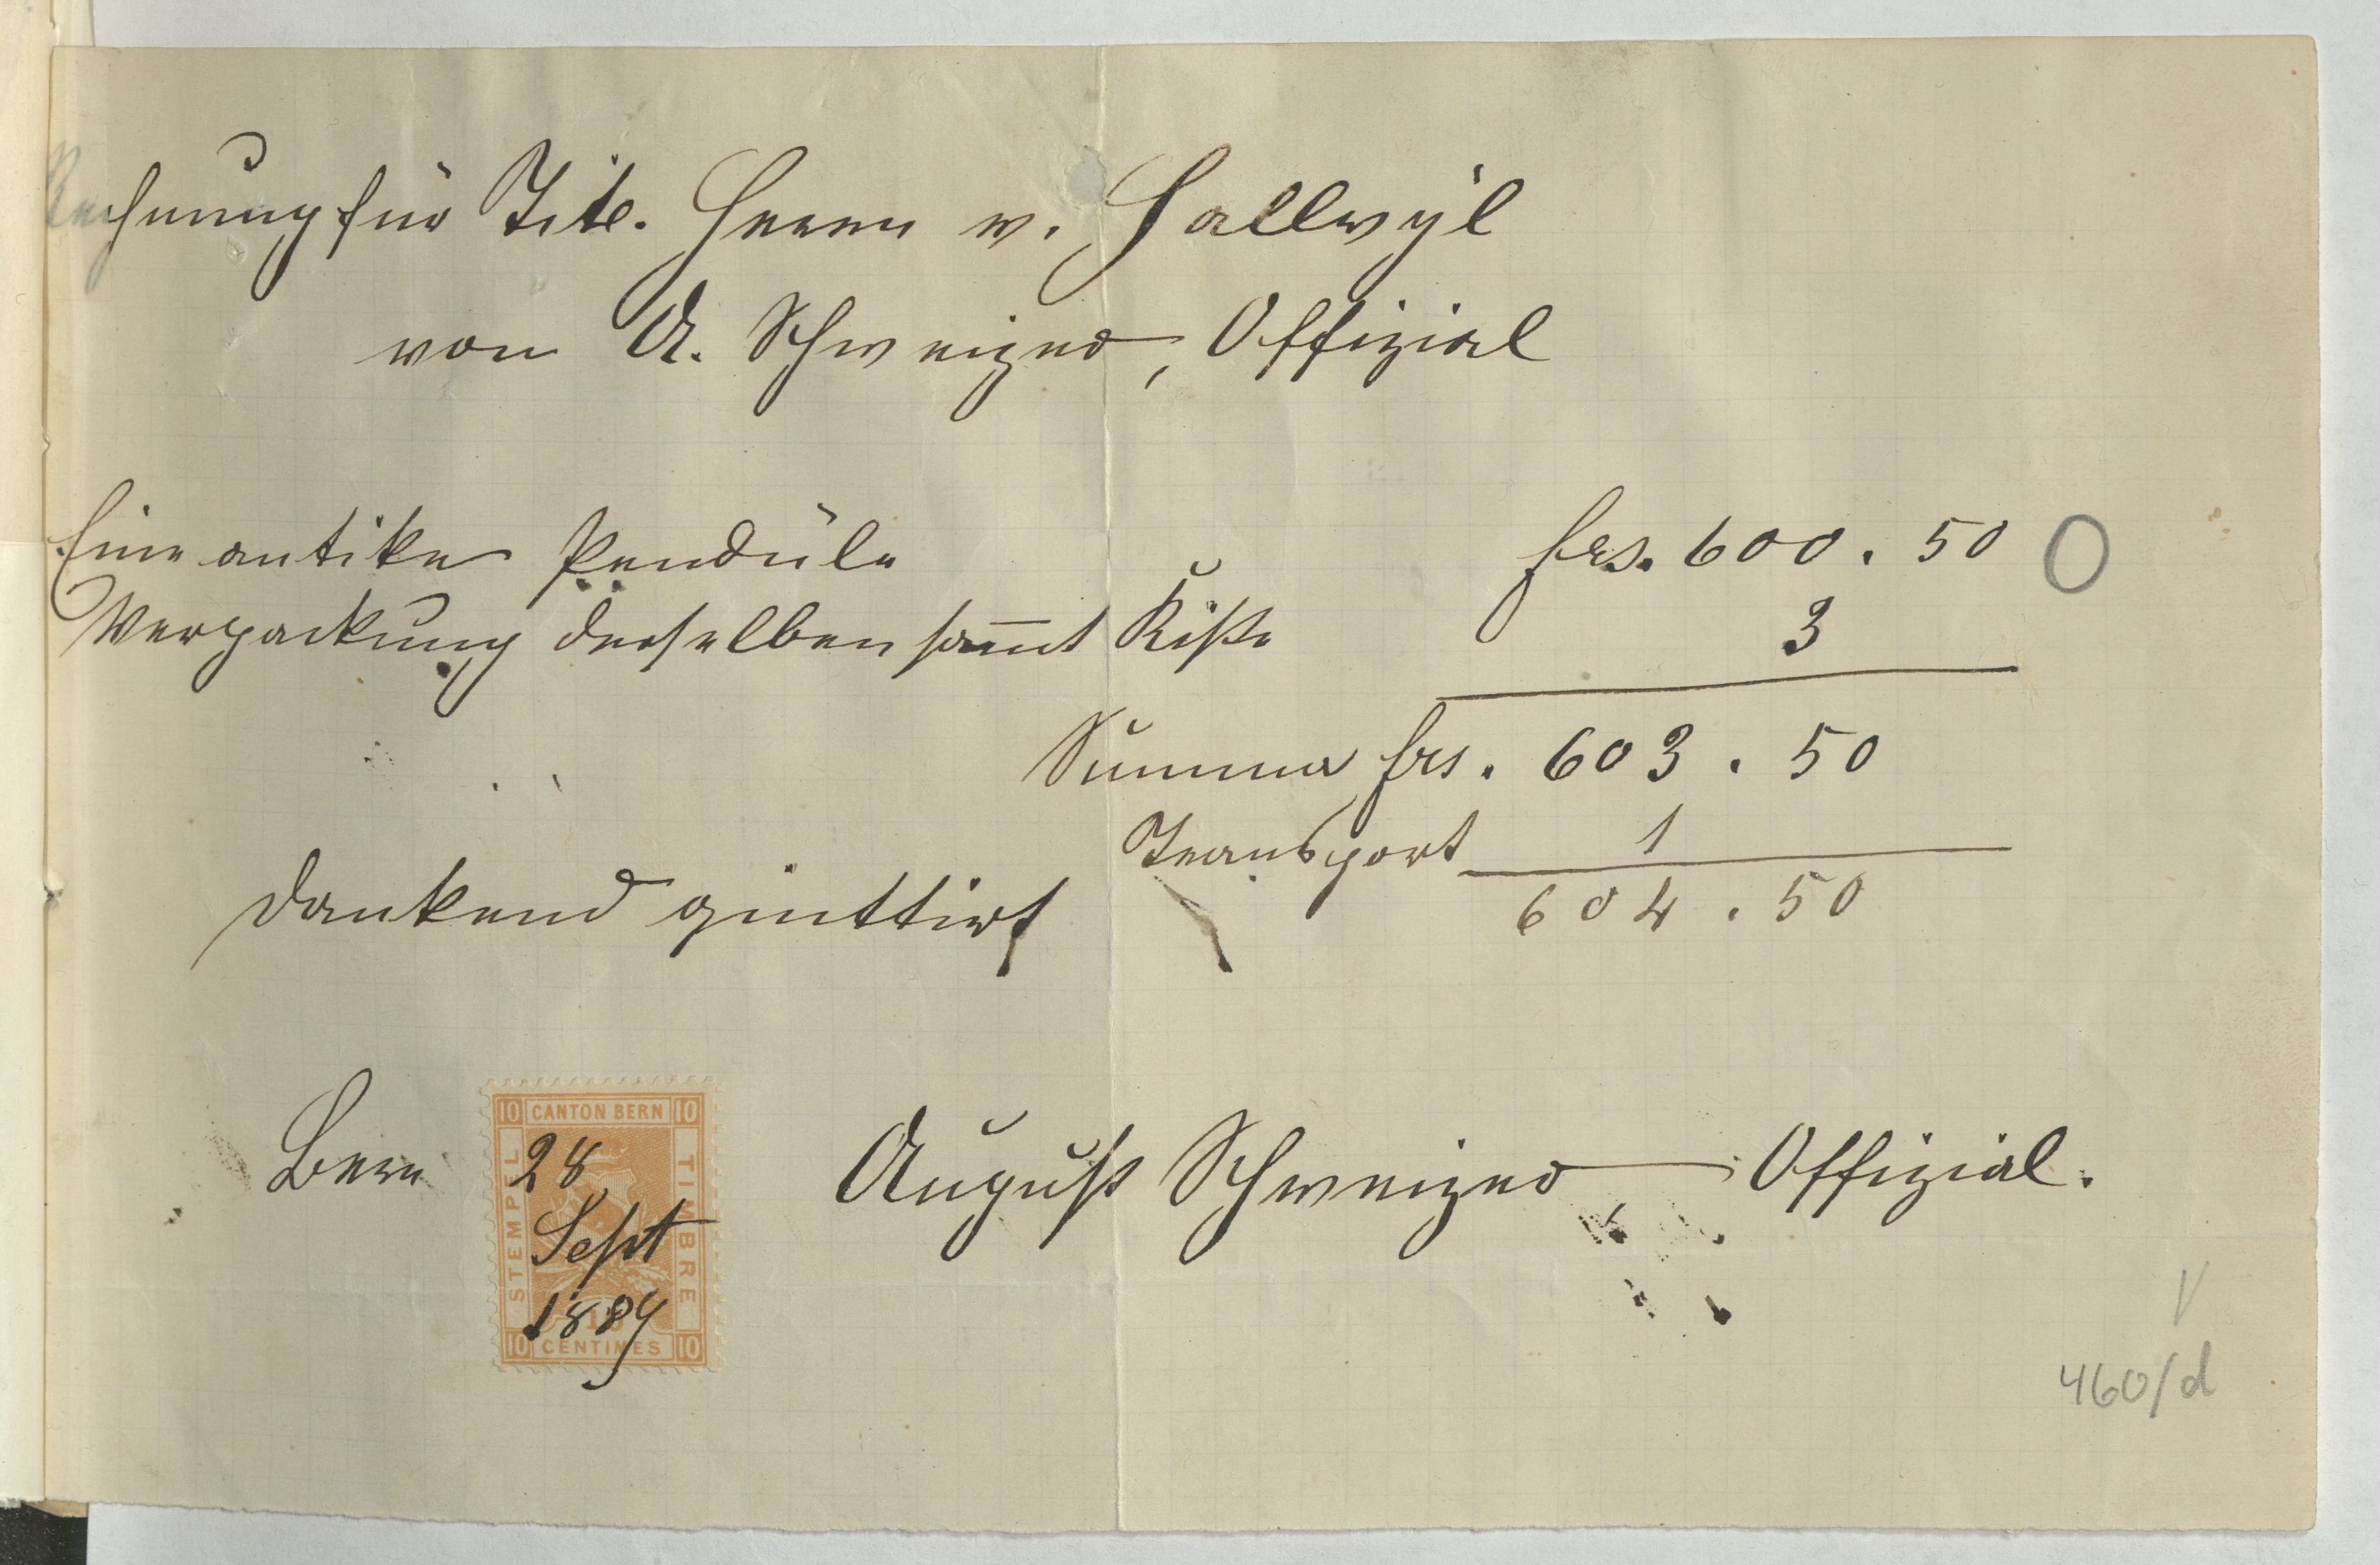 Rechnung für Tit. Herrn v. Hallwyl
von A. Schweizer, Offizial
Eine antike Pendüle frs. 600.50
Verpackung derselben sam̄t Kiste 3
Summa frs. 603.50
Transport 1
604.50
Dankend quittirt
Bern
10 CANTON BERN 10
STEMPEL
TIMBRE
28
Sept
1889
10 CENTIMES 10
August Schweizer, Offizial.
V
460/d